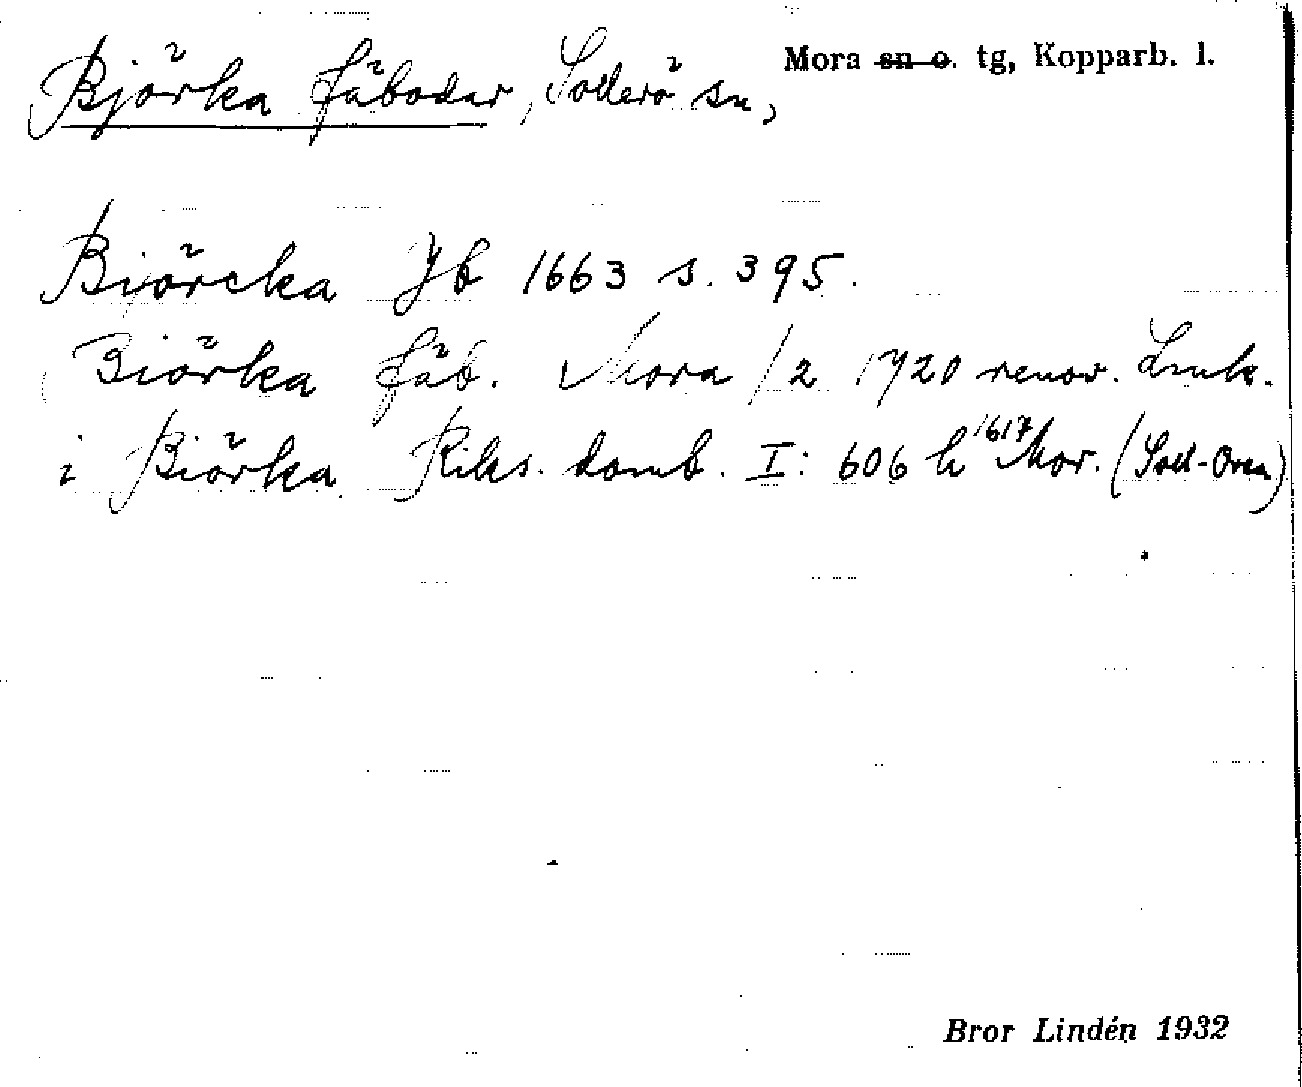 Björka fäbodar, Sollerö sn, Mora sn o. tg, Kopparb. l.
Biörcka Jb 1663 s. 395.
Biörka fäb. Mora /2 1720 renov. Lmk.
i Biörka Riks. domb. I: 606 h 1617 Mor. (Soll-Orsa)
Bror Lindén 1932